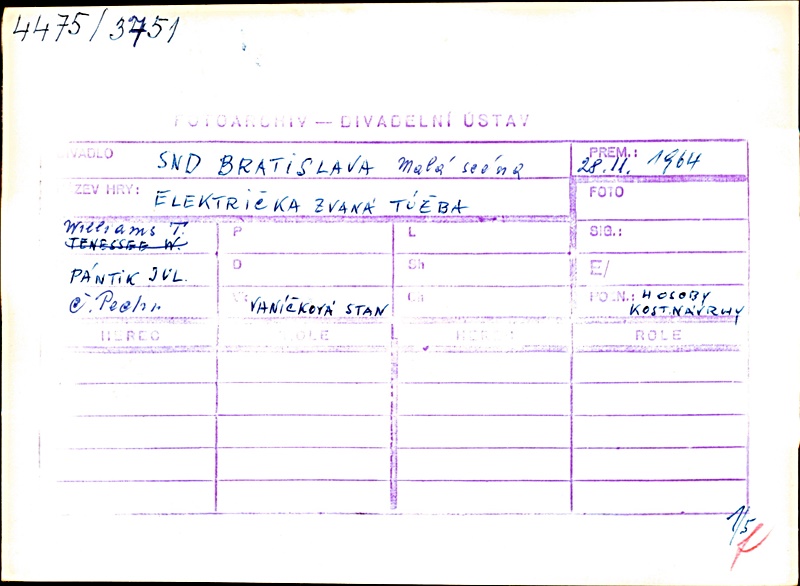 4475/3751
FOTOARCHIV — DIVADELNÍ ÚSTAV
DIVADLO SND BRATISLAVA Malá scéna PREM.: 28.11. 1964
NÁZEV HRY: ELEKTRIČKA ZVANÁ TÚŽBA FOTO
Williams T. P L SIG.:
TENESSEE W
PÁNTIK JÚL. D Sh E/
Č. Pechr VANÍČKOVÁ STAN Ch PO.N.: 4 OSOBY
KOST.NÁVRHY
HEREC ROLE HEREC ROLE
1/5